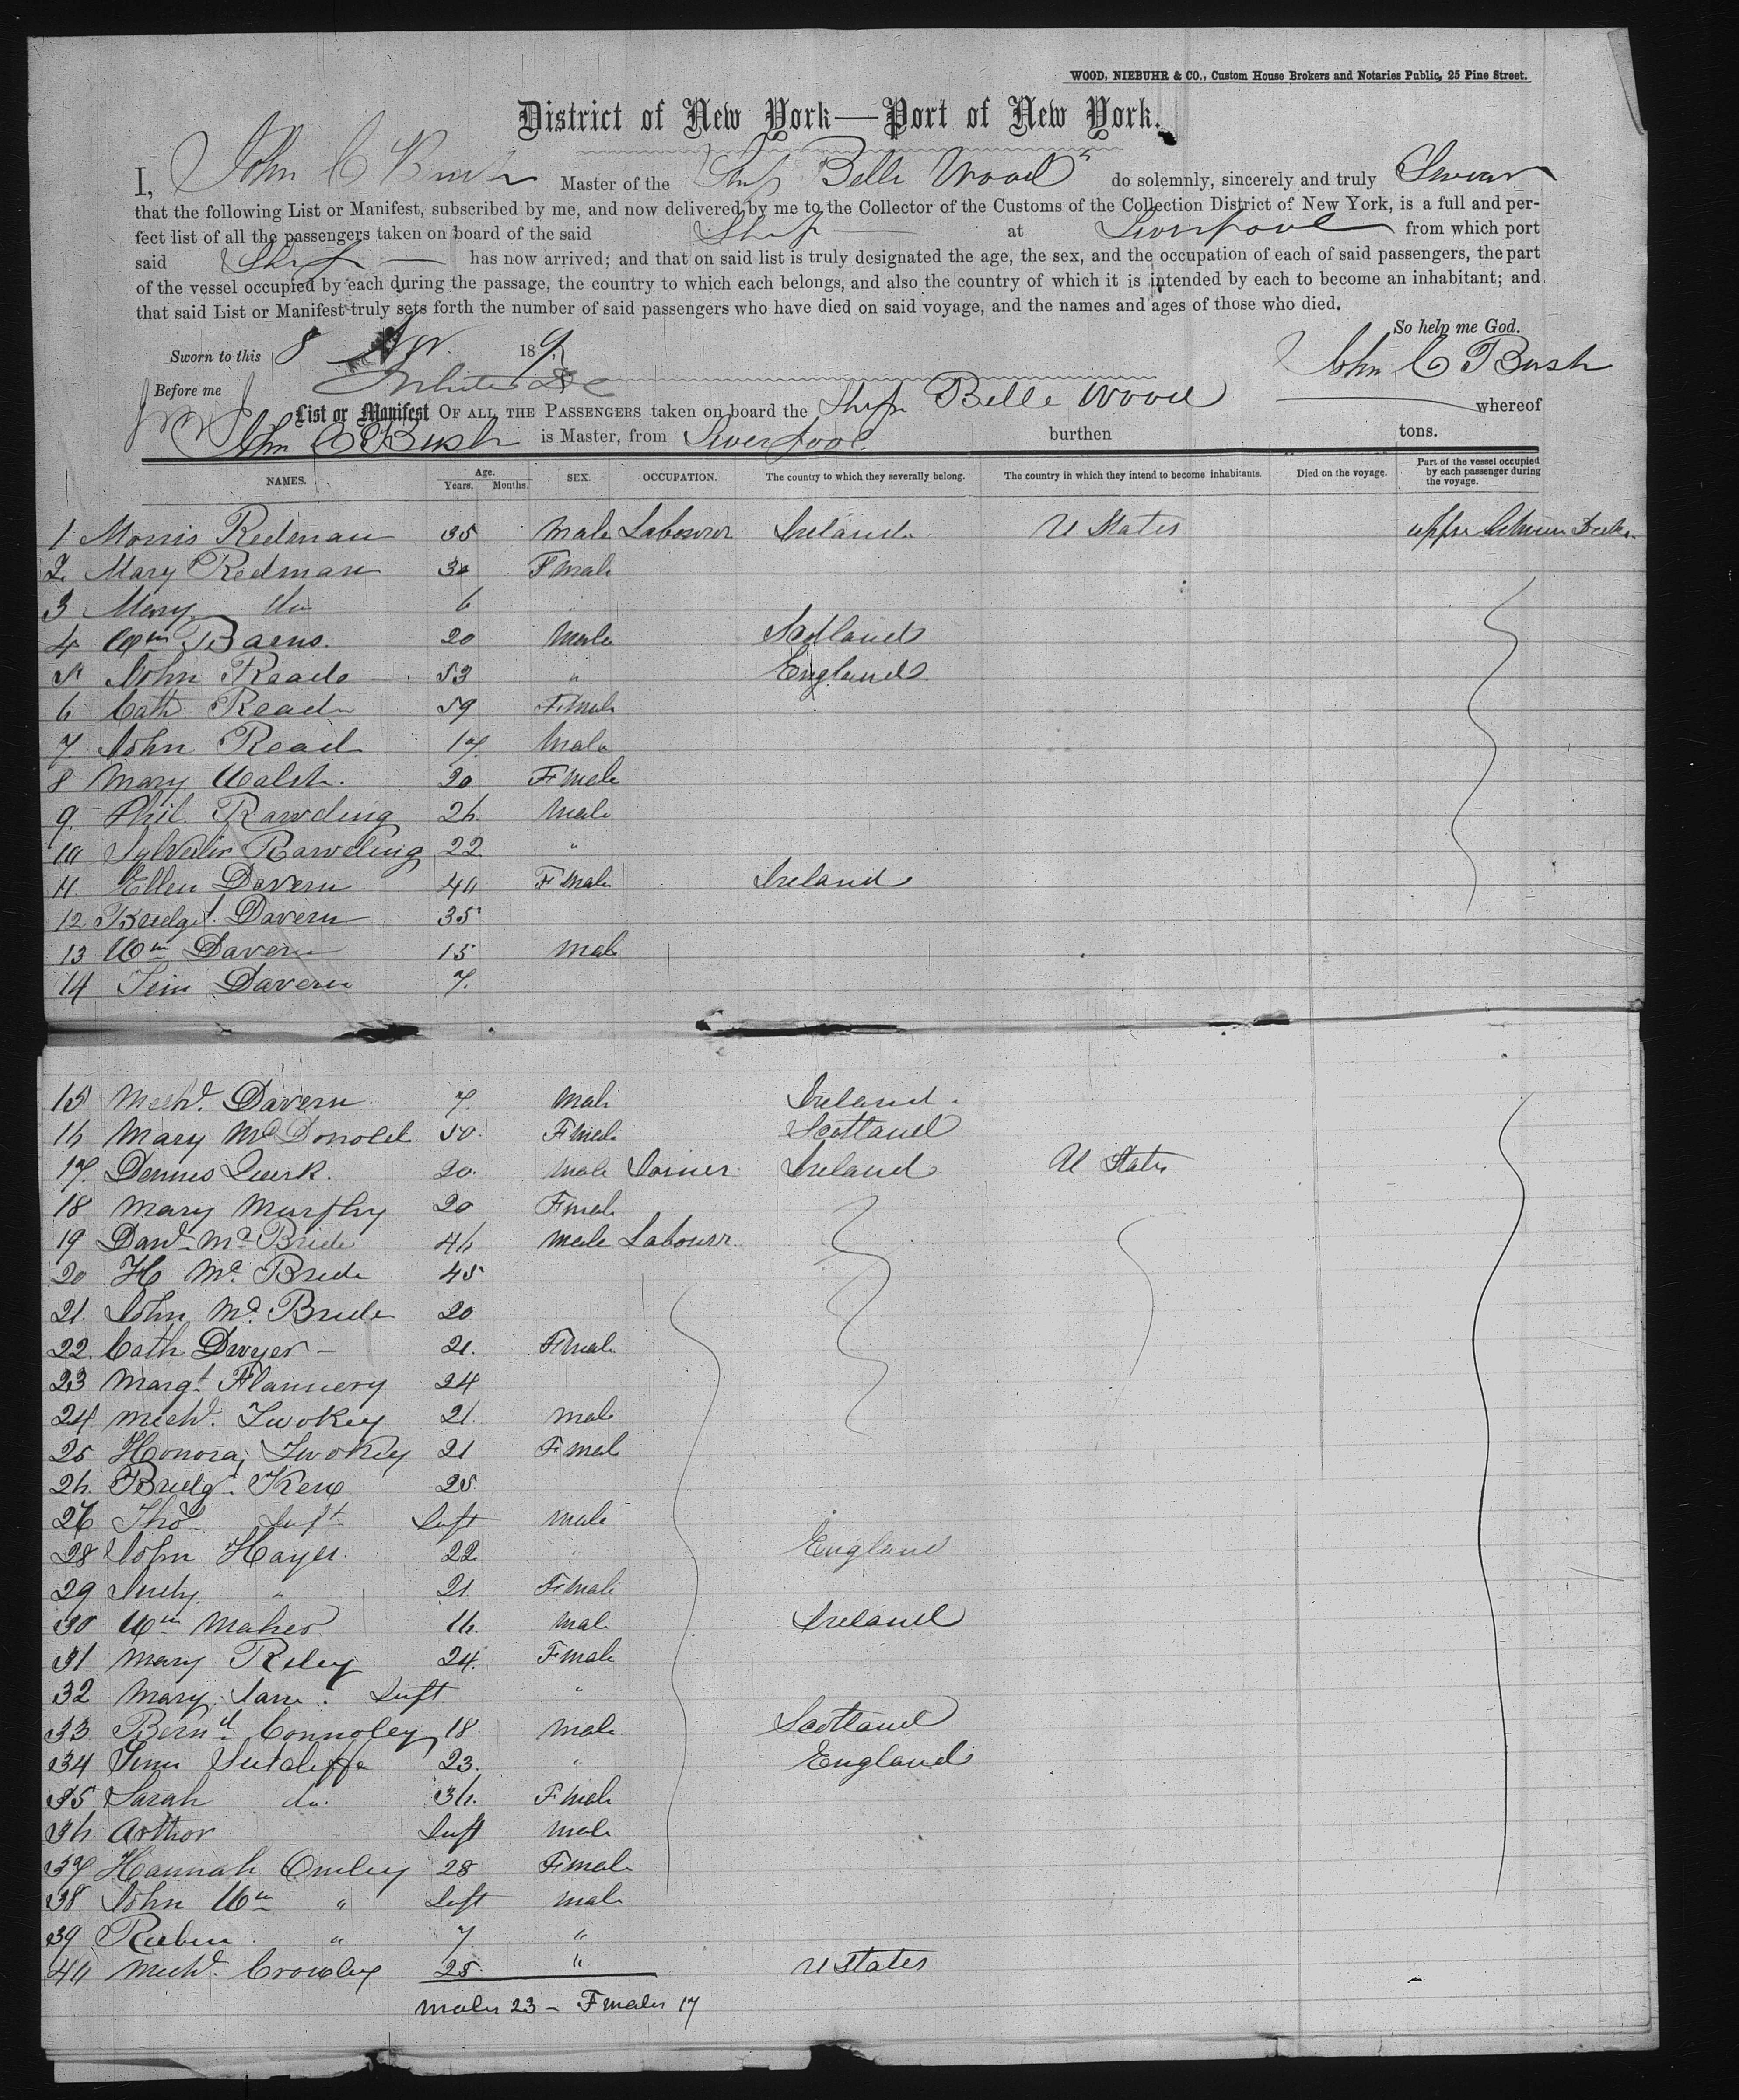 WOOD, NIEBUHR & CO., Custom House Brokers and Notaries Public, 25 Pine Street.
District of New York—Port of New York.
I, John C Bush Master of the Ship Belle Wood" do solemnly, sincerely and truly Swear
that the following List or Manifest, subscribed by me, and now delivered by me to the Collector of the Customs of the Collection District of New York, is a full and per-
fect list of all the passengers taken on board of the said Ship at Liverpool from which port
said Ship has now arrived; and that on said list is truly designated the age, the sex, and the occupation of each of said passengers, the part
of the vessel occupied by each during the passage, the country to which each belongs, and also the country of which it is intended by each to become an inhabitant; and
that said List or Manifest truly sets forth the number of said passengers who have died on said voyage, and the names and ages of those who died.
So help me God.
Sworn to this 8 187
John C Bush
Before me
List or Manifest OF ALL THE PASSENGERS taken on board the Ship Belle Wood whereof
John C Bush is Master, from Liverpool burthen tons.
NAMES. Age. Years. Months. SEX. OCCUPATION. The country to which they severally belong. The country in which they intend to become inhabitants. Died on the voyage. Part of the vessel occupied by each passenger during the voyage.
1 Morris Redman 35 Male Labourer Ireland U States upper between Decks
2 Mary Redman 30 Female
3 Mary do 6 "
4 Wm Barns. 20 Male Scotland
5 John Reade 53 " England
6 Cath Read 59 Female
7 John Read 17 Male
8 Mary Walsh. 20 Female
9 Phil Rawding 26 Male
10 Sylvester Rawding 22 "
11 Ellen Davern 40 Female Ireland
12 Bridget Davern 35
13 Wm Davern 15 Male
14 Tim Davern 7.
15 Michl. Davern 7. Male Ireland.
16 Mary McDonold 50. Female Scotland
17 Dennis Quirk. 20. Male Joiner Ireland U States
18 Mary Murphy 20 Female
19 Danl McBride 46 Male Labourer
20 H McBride 45
21. John McBride 20
22. Cath Dwyer 21. Female
23 Margt Flannery 24
24 Michl. Twokey 21. Male
25 Honora Twokey 21 Female
26. Bridgt. 25
27 Thos Inft Inft Male
28 John Hayes. 22 " England
29 Judy. " 21. Female
30 Wm Maher 16. Male Ireland
31 Mary Riley 24. Female
32 Mary Jane. Inft "
33 Bernd Connoley 18. Male Scotland
34 Sutcliffe 23. " England
35 Sarah do. 36. Female
36 Arthor Inft Male
37 Hannah 28 Female
38 John Wm " Inft Male
39 Reuben " 7. "
40 Michl. Crowley 25. " U States
Males 23 - Females 17